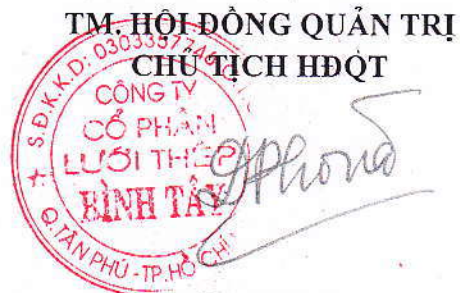 TM. HỘI ĐỒNG QUẢN TRỊ
CHỦ TỊCH HĐQT
S.Đ.K.K.D: 0303357746
CÔNG TY
CỔ PHẦN
LƯỚI THÉP
BÌNH TÂY
Q.TÂN PHÚ - TP.HỒ CHÍ